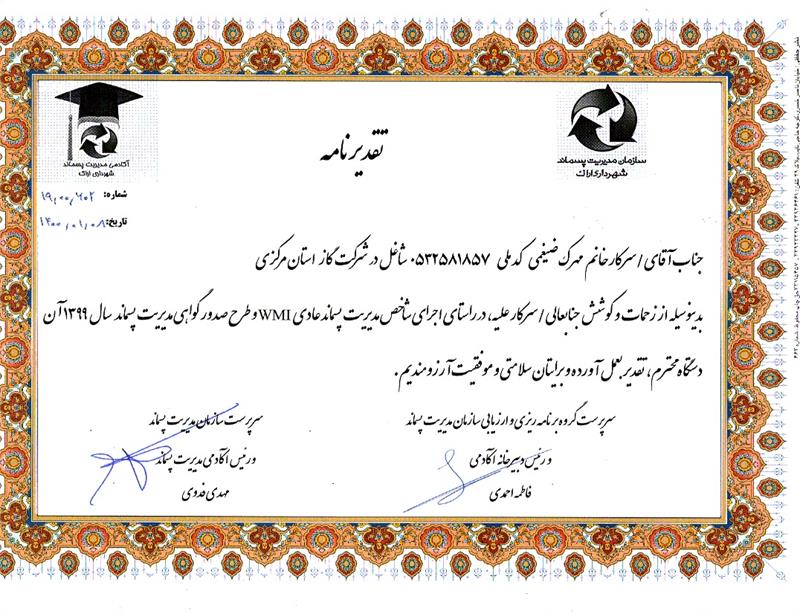 تقدیرنامه
سازمان مدیریت پسماند
شهرداری اراک
آکادمی مدیریت پسماند
شهرداری اراک
شماره: ۱۹٫۰۰٫۶۰۲
تاریخ: ۱۴۰۰٫۰۱٫۰۸
جناب آقای / سرکار خانم مهرک ضیغمی کدملی ۰۵۳۲۵۸۱۸۵۷ شاغل در شرکت گاز استان مرکزی
بدینوسیله از زحمات و کوشش جنابعالی / سرکار علیه، در راستای اجرای شاخص مدیریت پسماند عادی WMI و طرح صدور گواهی مدیریت پسماند سال ۱۳۹۹ آن
دستگاه محترم، تقدیر بعمل آورده و برایتان سلامتی و موفقیت آرزومندیم.
سرپرست گروه برنامه ریزی و ارزیابی سازمان مدیریت پسماند
و رئیس دبیرخانه آکادمی
فاطمه احمدی
سرپرست سازمان مدیریت پسماند
و رئیس آکادمی مدیریت پسماند
مهدی فدوی